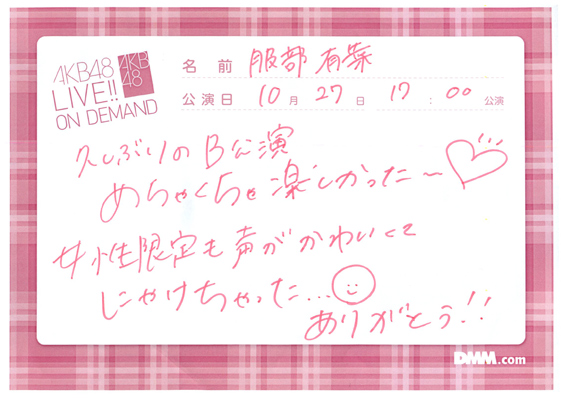 AKB48
LIVE!!
ON DEMAND
AKB
48
名前 服部有菜
公演日 10月27日 17:00公演
久しぶりのB公演
めちゃくちゃ楽しかった〜
女性限定も声がかわいくて
にやけちゃった...
ありがとう!!
DMM.com